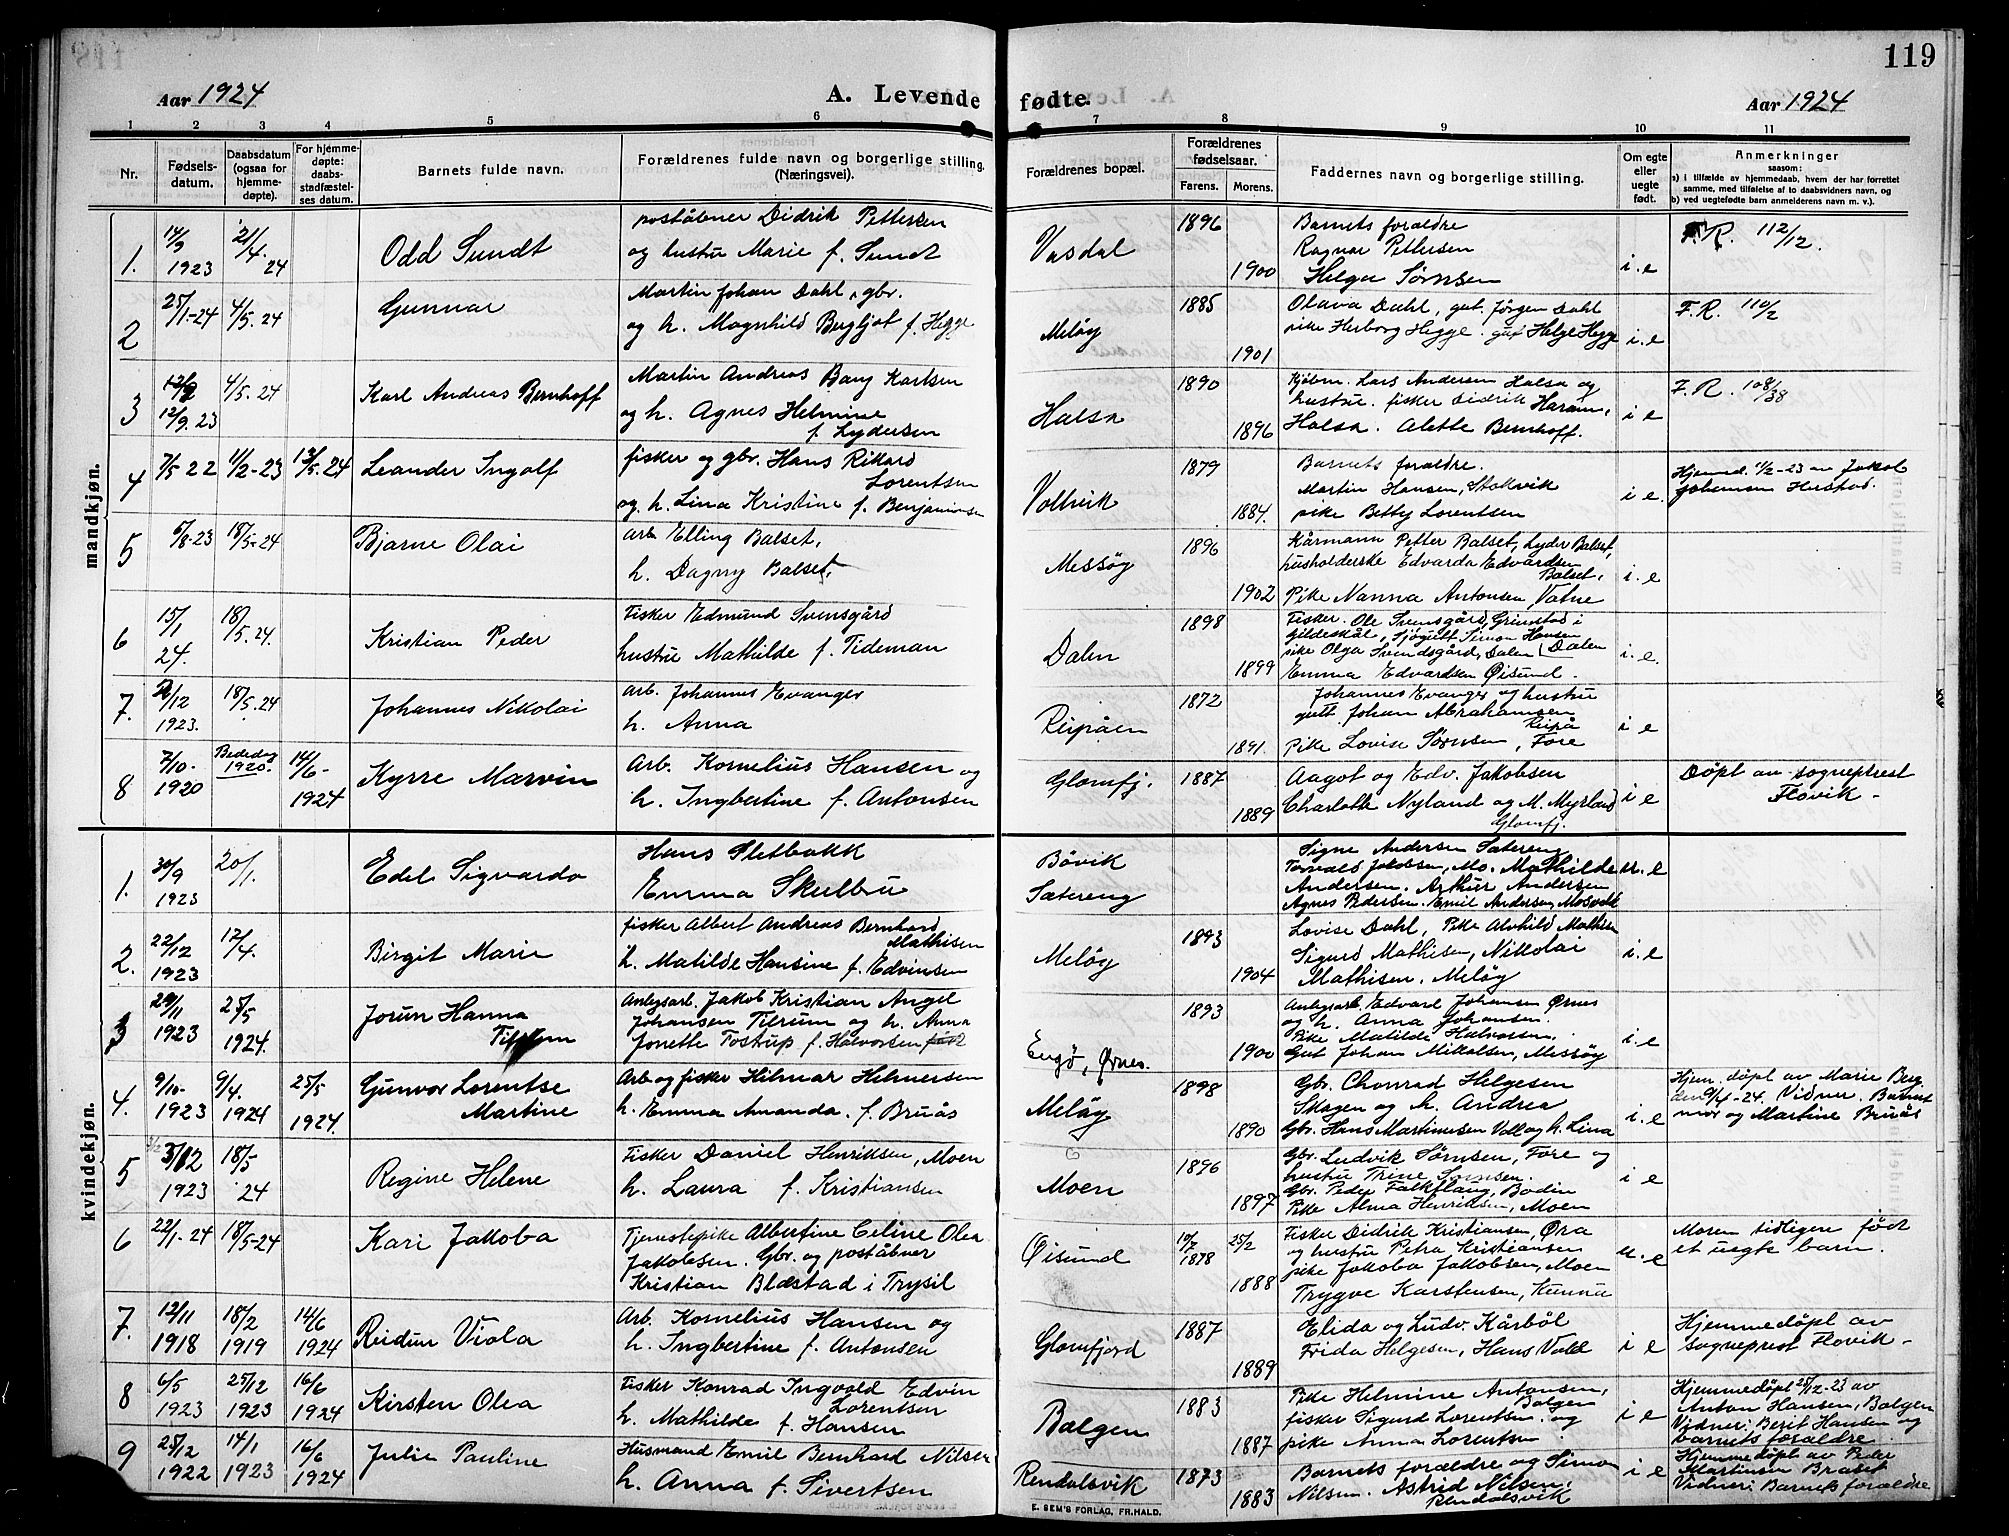 119
Aar 1924
A. Levende fødte.
Aar 1924
1 2 3 4 5 6 7 8 9 10 11
Nr.
Fødsels-datum.
Daabsdatum (ogsaa for hjemme-døpte).
For hjemme-døpte: daabs-stadfæstel-ses datum.
Barnets fulde navn.
Forældrenes fulde navn og borgerlige stilling. (Næringsvei).
Forældrenes bopæl.
Forældrenes fødselsaar.
Farens. Morens.
Faddernes navn og borgerlige stilling.
Om egte eller uegte født.
Anmerkninger
saasom:
a) i tilfælde av hjemmedaab, hvem der har forrettet samme, med tilføielse af to daabsvidners navn, og
b) ved uegtefødte barn anmelderens navn m. v.).
mandkjøn.
1. 14/9 1923 21/4. 24 Odd Sundt
poståbner Didrik Pettersen
og hustru Marie f. Sundt
Vasdal 1896 1900
Barnets foræld​re
Ragnar Pettersen
Helga Sørnsen
i. e F.R. 112/12.
2 25/1-24 4/5. 24 Gunnar
Martin Johan Dahl, gbr.
og h. Magnhild Bergljot f. Hegge
Meløy 1885 1901
Olava Dahl, gut. Jørgen Dahl
pike Herborg Hegge. gut Helge Hegge
i. e F.R. 110/2
3 12/9. 23 4/5. 24 Karl Andreas Bernhoff
Martin Andreas Bang Karlsen
og h. Agnes Helmine
f. Lydersen
Halsa 1890 1896
Kjøbm. Lars Andersen Halsa og
hustru. fisker Didrik Haram,
Halsa. Alette Bernhoff.
i e F.R. 108/38
4 7/5 22 11/2-23 13/5. 24 Leander Ingolf
fisker og gbr. Hans Rikard
Lorentsen
og h. Lina Kristine f. Benjaminsen
Voltvik 1879 1884.
Barnets foræld​re.
Martin Hansen, Stokvik
pike Betty Lorentsen
i e. Hjemmed. 11/2-23 av Jakob
Johansen Hustad.
5 6/8-23 18/5-24 Bjarne Olai
arb Elling Balset.
h. Dagny Balset.
Messøy 1896 1902
Kårmann Petter Balset, Lyder Balset,
husholderske Edvarda Edvardsen
Balset.
Pike Nanna Antonsen, Vatne
i. e
6 15/1 24. 18/5. 24. Kristian Peder
Fisker Edmund Svensgård
hustru Mathilde f. Tideman
Dalen 1898 1899
Fisker. Ole Svensgård, Grimstad i
Gildeskål, Sjøgutt Simon Hansen
pike Olga Svendsgård, Dalen Dalen
Emma Edvardsen Øisund.
i. e.
7. 21/12 1923. 18/5. 24 Johannes Nikolai
arb. Johannes Evanger
h. Anna
Reipåen 1872 1891.
Johannes Evanger og hustru
gutt. Johan Abrahamsen
Reipå
Pike Lovise Sørnsen, Fore
i e
8 7/10- 1920 Bededag 1920. 14/6- 1924 Kyrre Marvin
Arb. Kornelius Hansen og
h. Ingbertine f. Antonsen
Glomfj. 1887 1889
Aagot og Edv. Jakobsen
Charlotte Nyland og M. Myrland
Glomfj.
i e Døpt av sogneprest
Flovik -
kvindekjøn.
1. 30/9 1923 20/1. Edel Sigvarda
Hans Sletbakk
Emma Skulbru
Båvik
Sætereng
Signe Andersen Sætereng
Torvald Jakobsen, Mo. Mathilde
Andersen. Arthur Andersen
Agnes Pedersen. Emil Andersen, Mosvik
u. e
2. 22/12 1923 12/4. Birgit Marie
fisker Albert Andreas Bernhard
Mathisen
h. Matilde Hansine f. Edvinsen
Meløy 1893 1904
Lovise Dahl, Pike Alvhild Mathisen
Sigurd Mathisen, Nikolai
Mathisen, Meløy
i. e
3 29/11 1923 25/5 1924. Jorun Hanna
Tilrum
Anlegsarb. Jakob Kristian Angel
Johansen Tilrum og h. Anna
Jonette Tostrup f. Halvorsen
Engø, Ørnes. 1893 1900
Anlegsarb Edvard Johansen Ørnes
og h. Anna Johansen.
Pike Matilde Halvorsen.
Gut Johan Mikalsen, Messøy
i. e
4. 9/10- 1923 9/4. 1924 25/5 1924. Gunvor Lorentse
Martine
Arb og fisker Hilmar Helmersen
h. Emma Amanda. f. Bruås
Meløy 1898 1890
Gbr. Chonrad Helgesen
Skagen og h. Andrea
Gbr. Hans Martinusen Vall og h. Lina
i. e Hjem. døpt av Marie Berg.
den 9/4-24. Vidner. Barnets
mor og Martine Bruås
5 3/12 1923 18/5 24 Regine Helene
Fisker Daniel Henriksen, Moen
h. Laura f. Kristiansen
Moen 1896 1897
Gbr. Ludvik Sørnsen, Fore og
hustru Trine Sørnsen.
Gbr. Peder Falkflaug, Bodin
Pike Alma Henriksen, Moen
i e
6 22/1-24 18/5-24 Kari Jakoba
Tjenestepike Albertine Celine Olea
Jakobsen. Gbr. og poståbner
Kristian Blæstad i Trysil
Øisund 10/7 1878 25/2 1888
Fisker Didrik Kristiansen, Øra
og hustru Petra Kristiansen
pike Jakoba Jakobsen, Moen
Trygve Karstensen, Kunna
u. e Moren tidligere født
et uegte barn.
7. 12/11 1918 18/2 1919 14/6 1924 Reidun Viola
Arb. Kornelius Hansen og
h. Ingbertine f. Antonsen
Glomfjord 1887 1889
Elida og Ludv. Kårbøl
Frida Helgesen, Hans Vold
i e Hjemmedøpt av
sogneprest Flovik -
8 6/5 1923 25/12 1923 16/6 1924 Kirsten Olea
Fisker Konrad Ingvald Edvin
Lorentsen
h. Mathilde f. Hansen
Bolgen 1883 1887
Pike Helmine Antonsen,
Bolgen
fisker Sigurd Lorentsen og
pike Anna Lorentsen
i e Hjemmedøpt 25/12-23 av
Anton Hansen, Bolgen
Vidner: Berit Hansen og
barnets foræld​re.
9 25/12 1922 14/1 1923 16/6 1924 Julie Pauline
Husmand Emil Bernhard Nilsen
h. Anna f. Sivertsen
Rendalsvik 1873 1883
Barnets foræld​re og Simon
Nilsen. Astrid Nilsen,
Rendalsvik
i e Hjemmedøpt av Peder
Martinsen Braset
Vidner: Barnets foræld​re
E. SEM'S FORLAG, FR.HALD.